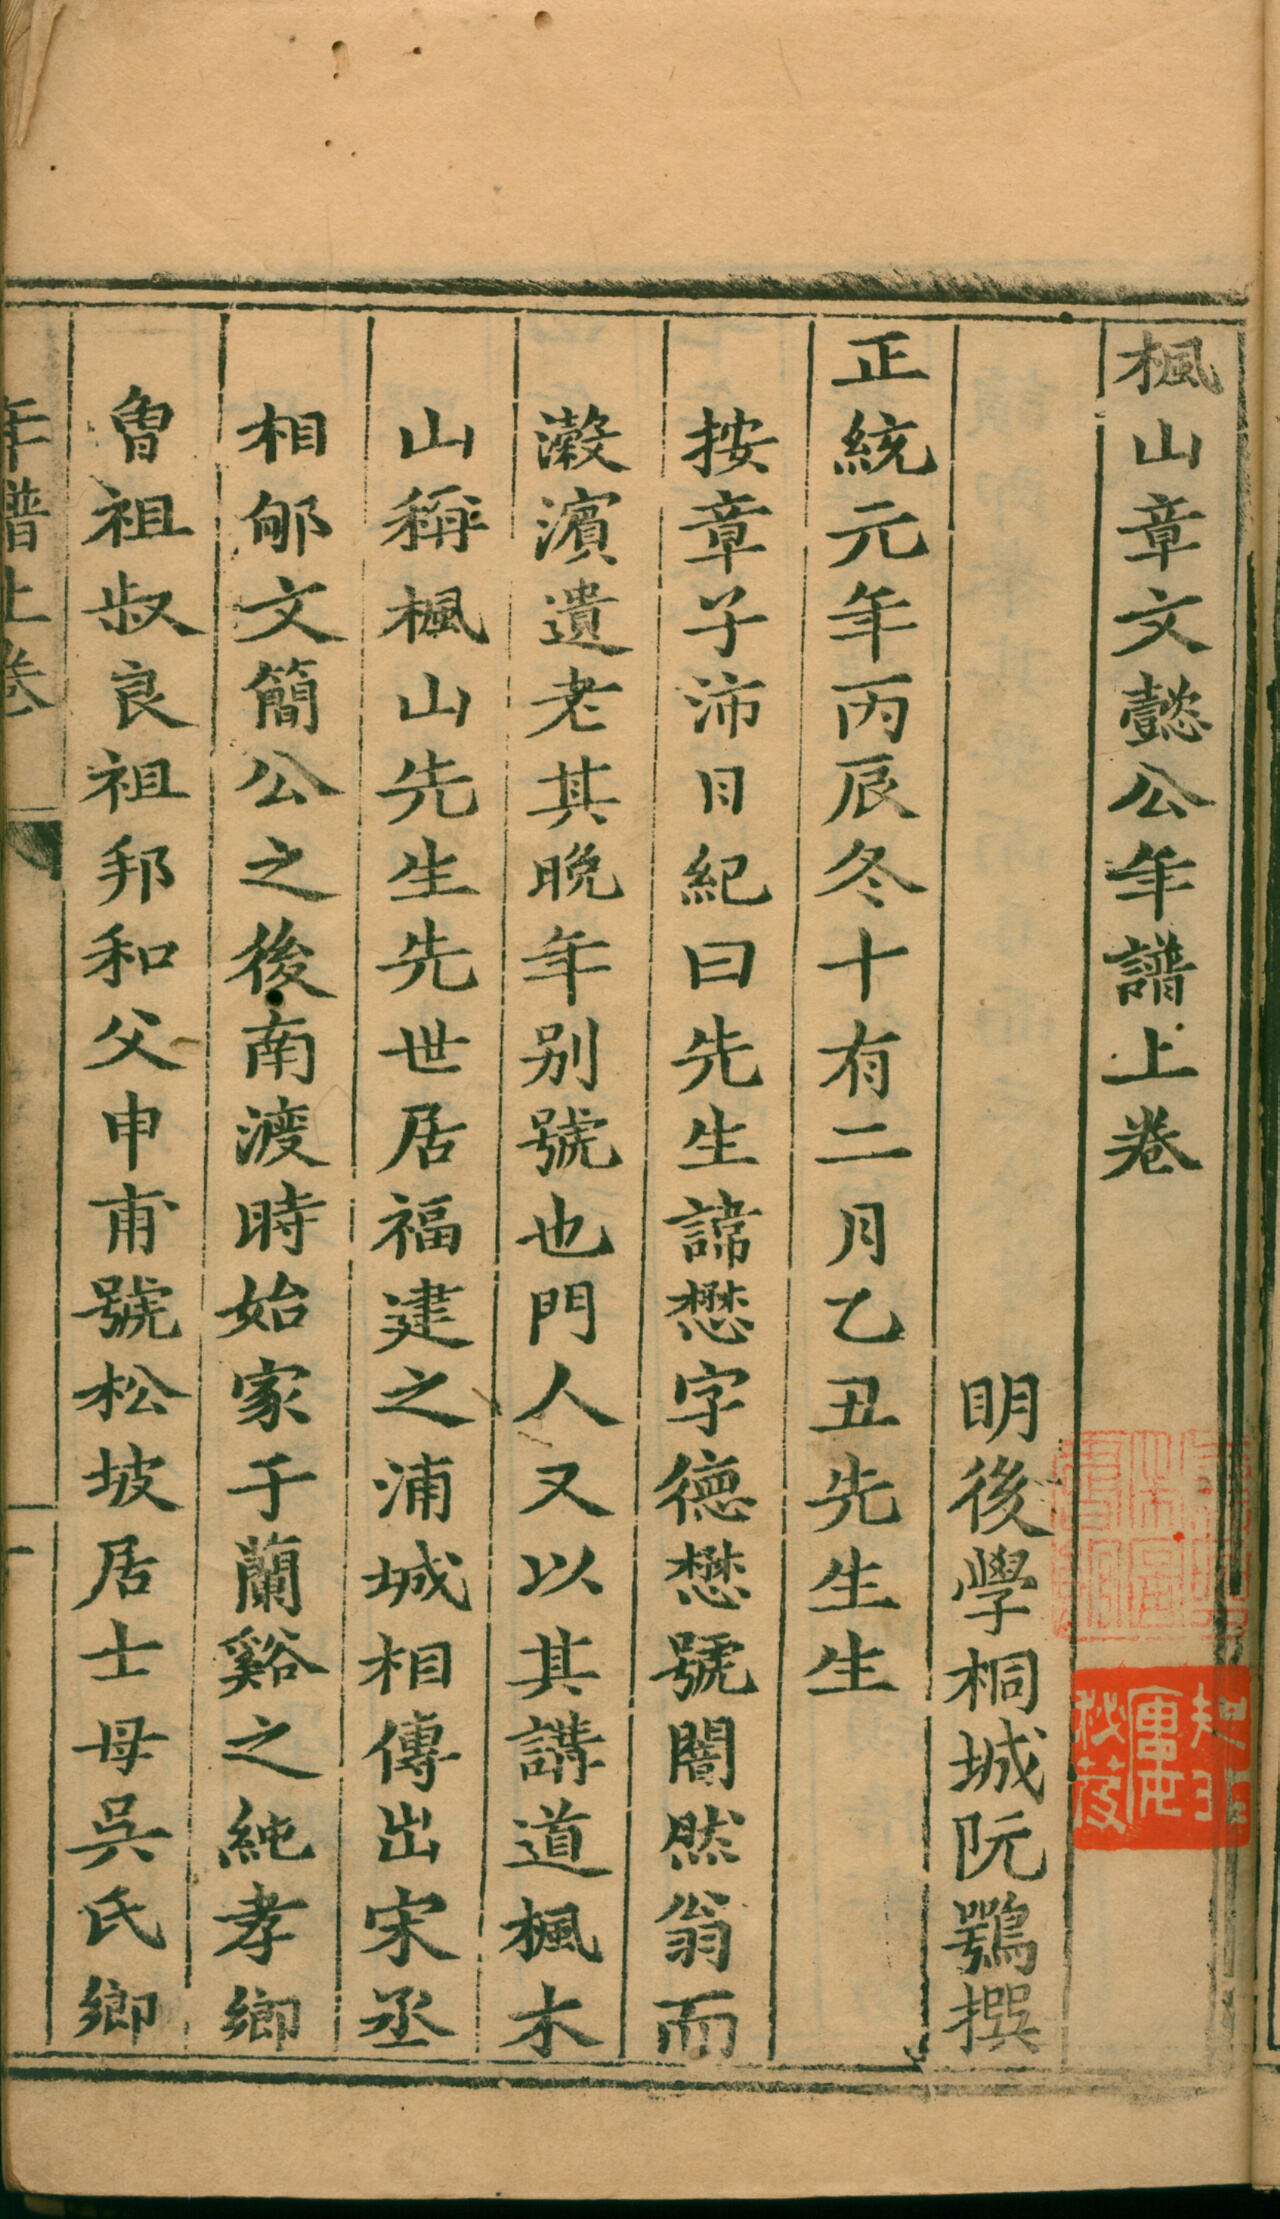 楓山章文懿公年譜上卷
明後學桐城阮鶚撰
正統元年丙辰冬十有二月乙丑先生生
按章子沛日紀曰先生諱懋字德懋號闇然翁而
瀫濱遺老其晚年别號也門人又以其講道楓木
山稱楓山先生先世居福建之浦城相傳出宋丞
相郇文簡公之後南渡時始家于蘭谿之純孝鄉
曾祖叔良祖邦和父申甫號松坡居士母吳氏鄉
年譜上卷
一